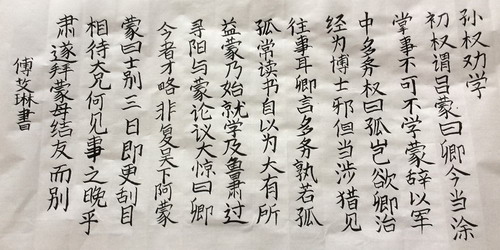 孙权劝学
初权谓吕蒙曰卿今当涂
掌事不可不学蒙辞以军
中多务权曰孤岂欲卿治
经为博士邪但当涉猎见
往事耳卿言多务孰若孤
孤常读书自以为大有所
益蒙乃始就学及鲁肃过
寻阳与蒙论议大惊曰卿
今者才略非复吴下阿蒙
蒙曰士别三日即更刮目
相待大兄何见事之晚乎
肃遂拜蒙母结友而别
傅艾琳書